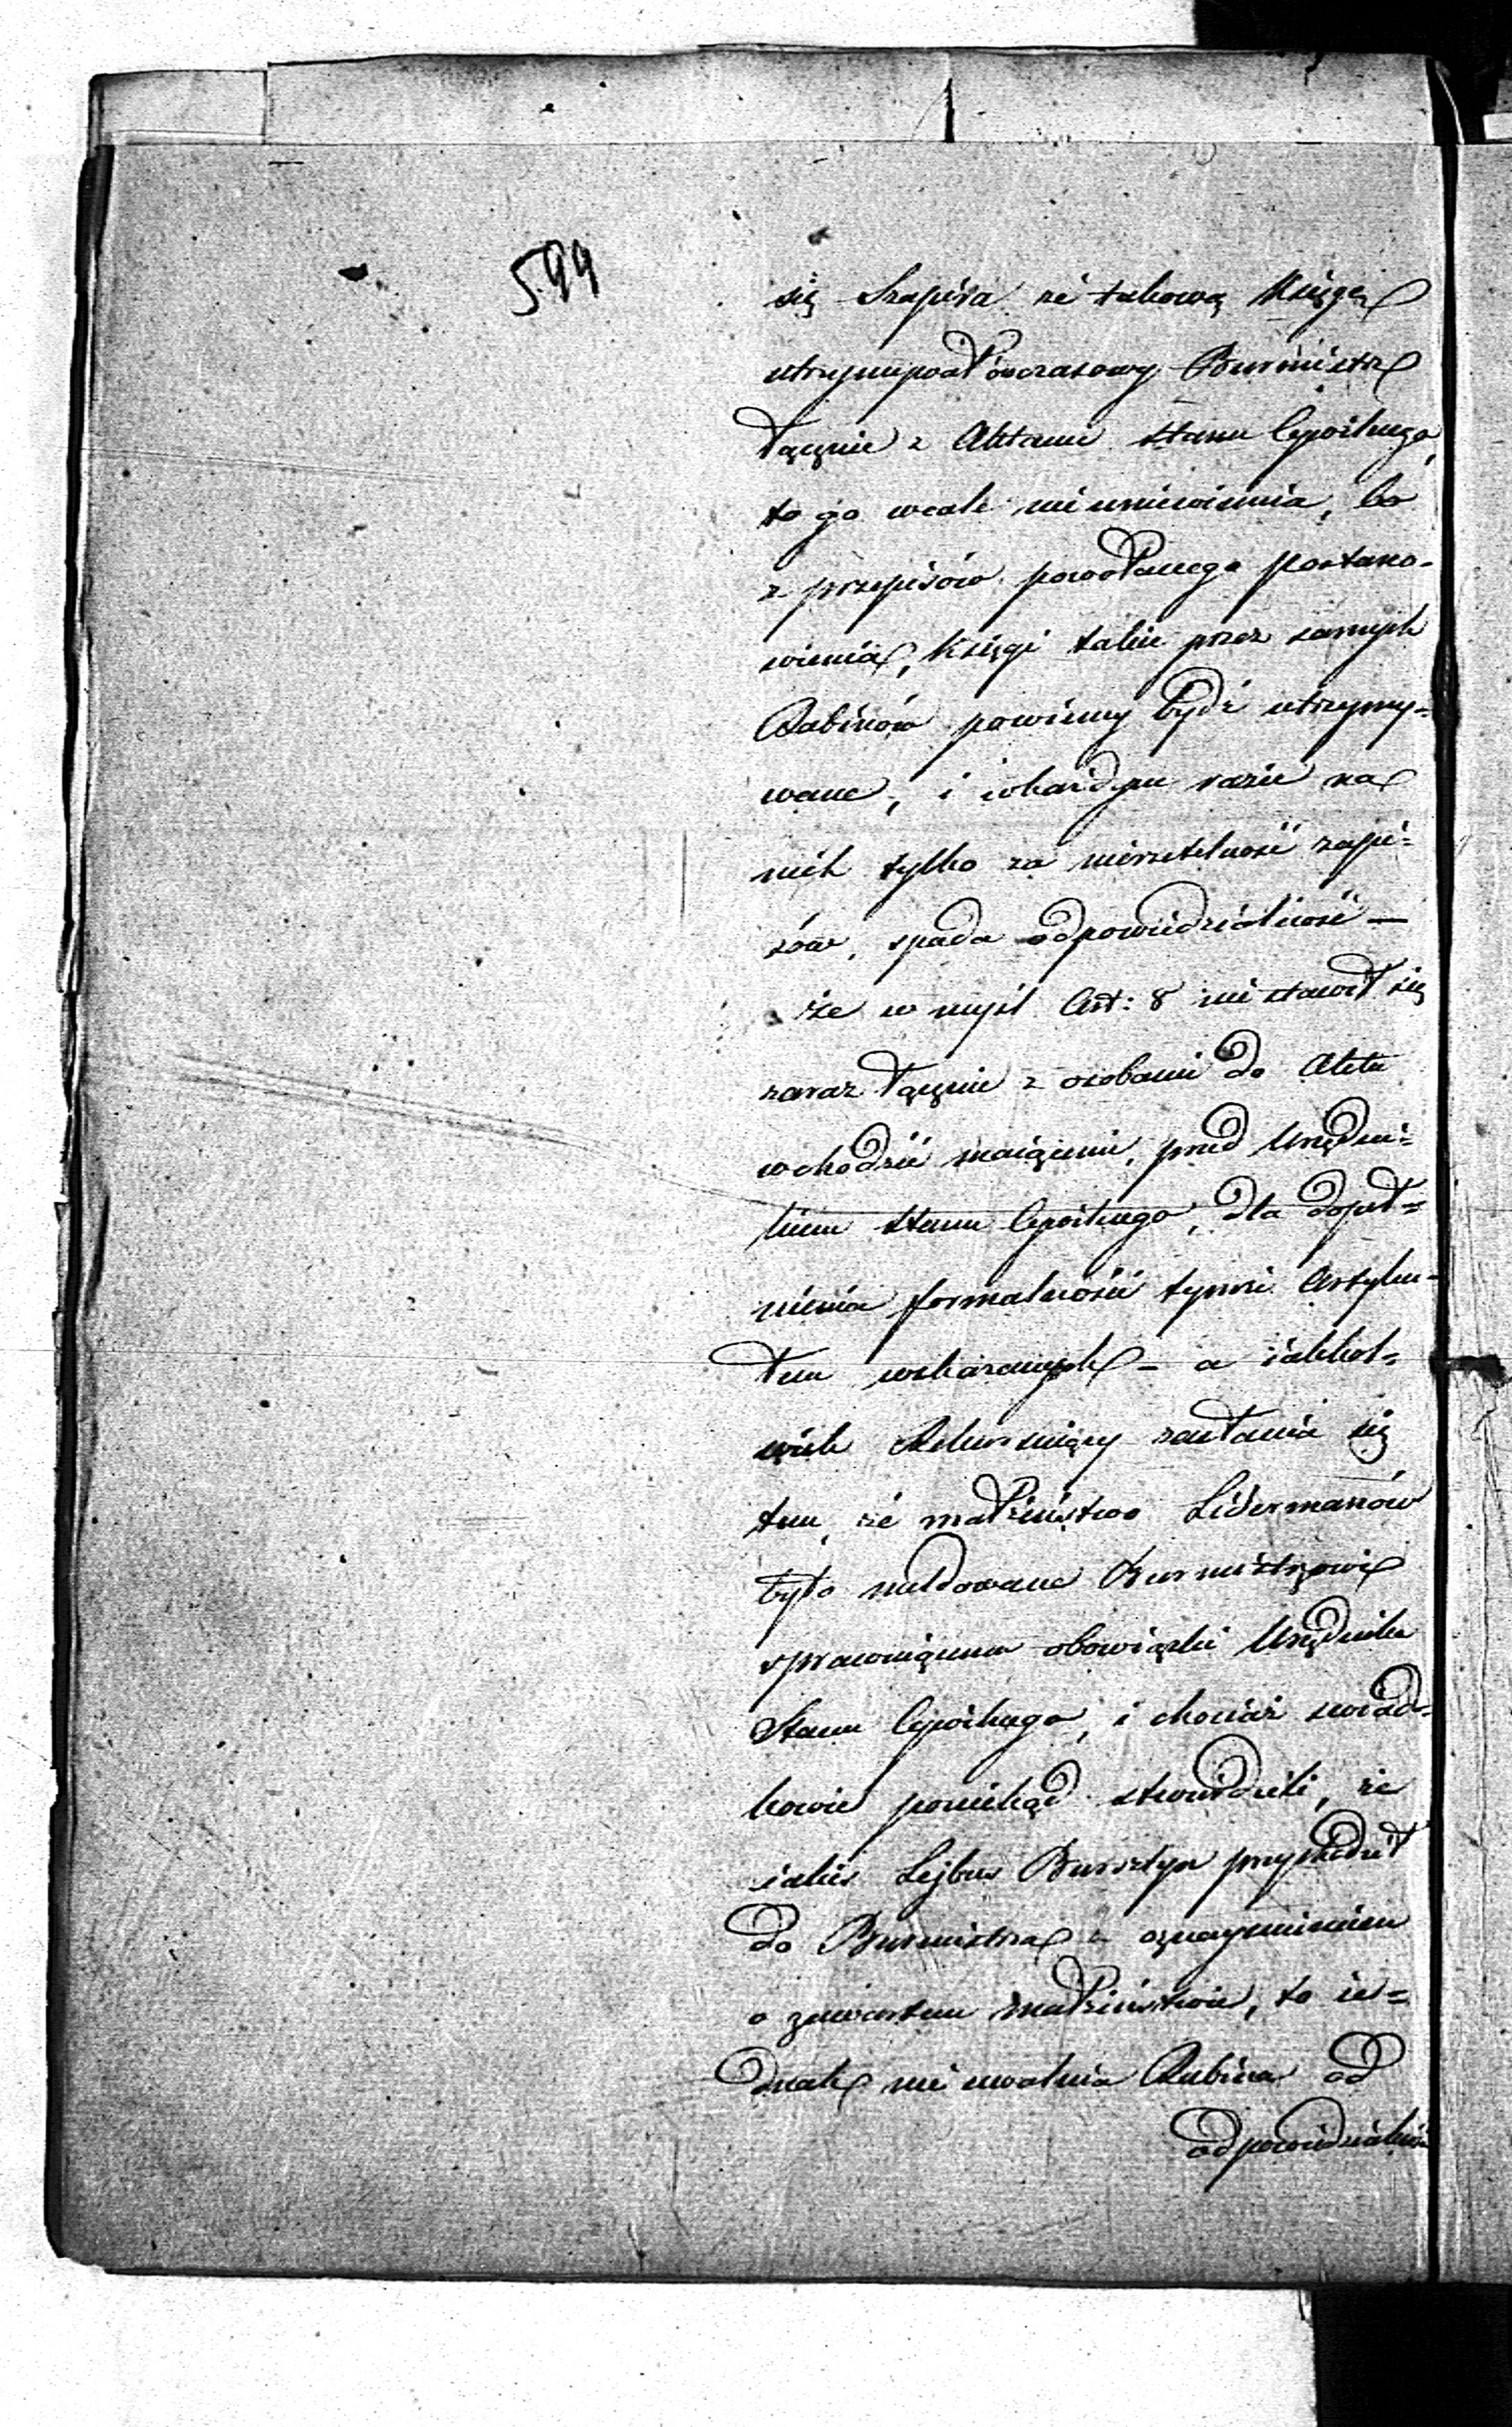 599
się Szapira że takową Księgę
utrzymywał ówczasowy Burmistrz
łącznie z Aktami stanu Cywilnego,
to go wcale nieuniewinnia, bo
z przepisów powołanego postano-
wienia, Księgi takie przez samych
Rabinów powinny bydź utrzymy-
wane, i w każdym razie na
nich tylko za nierzetelność zapi-
sów, spada odpowiedzialność —
że w myśl Art: 8 nie stawił się
zaraz łącznie z osobami do Aktu
wchodzić maiącemi, przed Urzędni-
kiem stanu Cywilnego, dla dopeł-
nienia formalności tymże Artyku-
łem wskazanych – a iakkol-
wiek Rekursuiący zasłania się
tem, że małżeństwo Lidermanów
było meldowane Burmistrzowi
sprawuiącemu obowiązki Urzędnika
Stanu Cywilnego, i chociaż świad-
kowie poniekąd stwierdzili, że
iakiś Lejbus Bursztyn przychodził
do Burmistrza z oznaymieniem
o zawartem małżeństwie, to ie-
dnak nie uwalnia Rabina od
odpowiedzialności